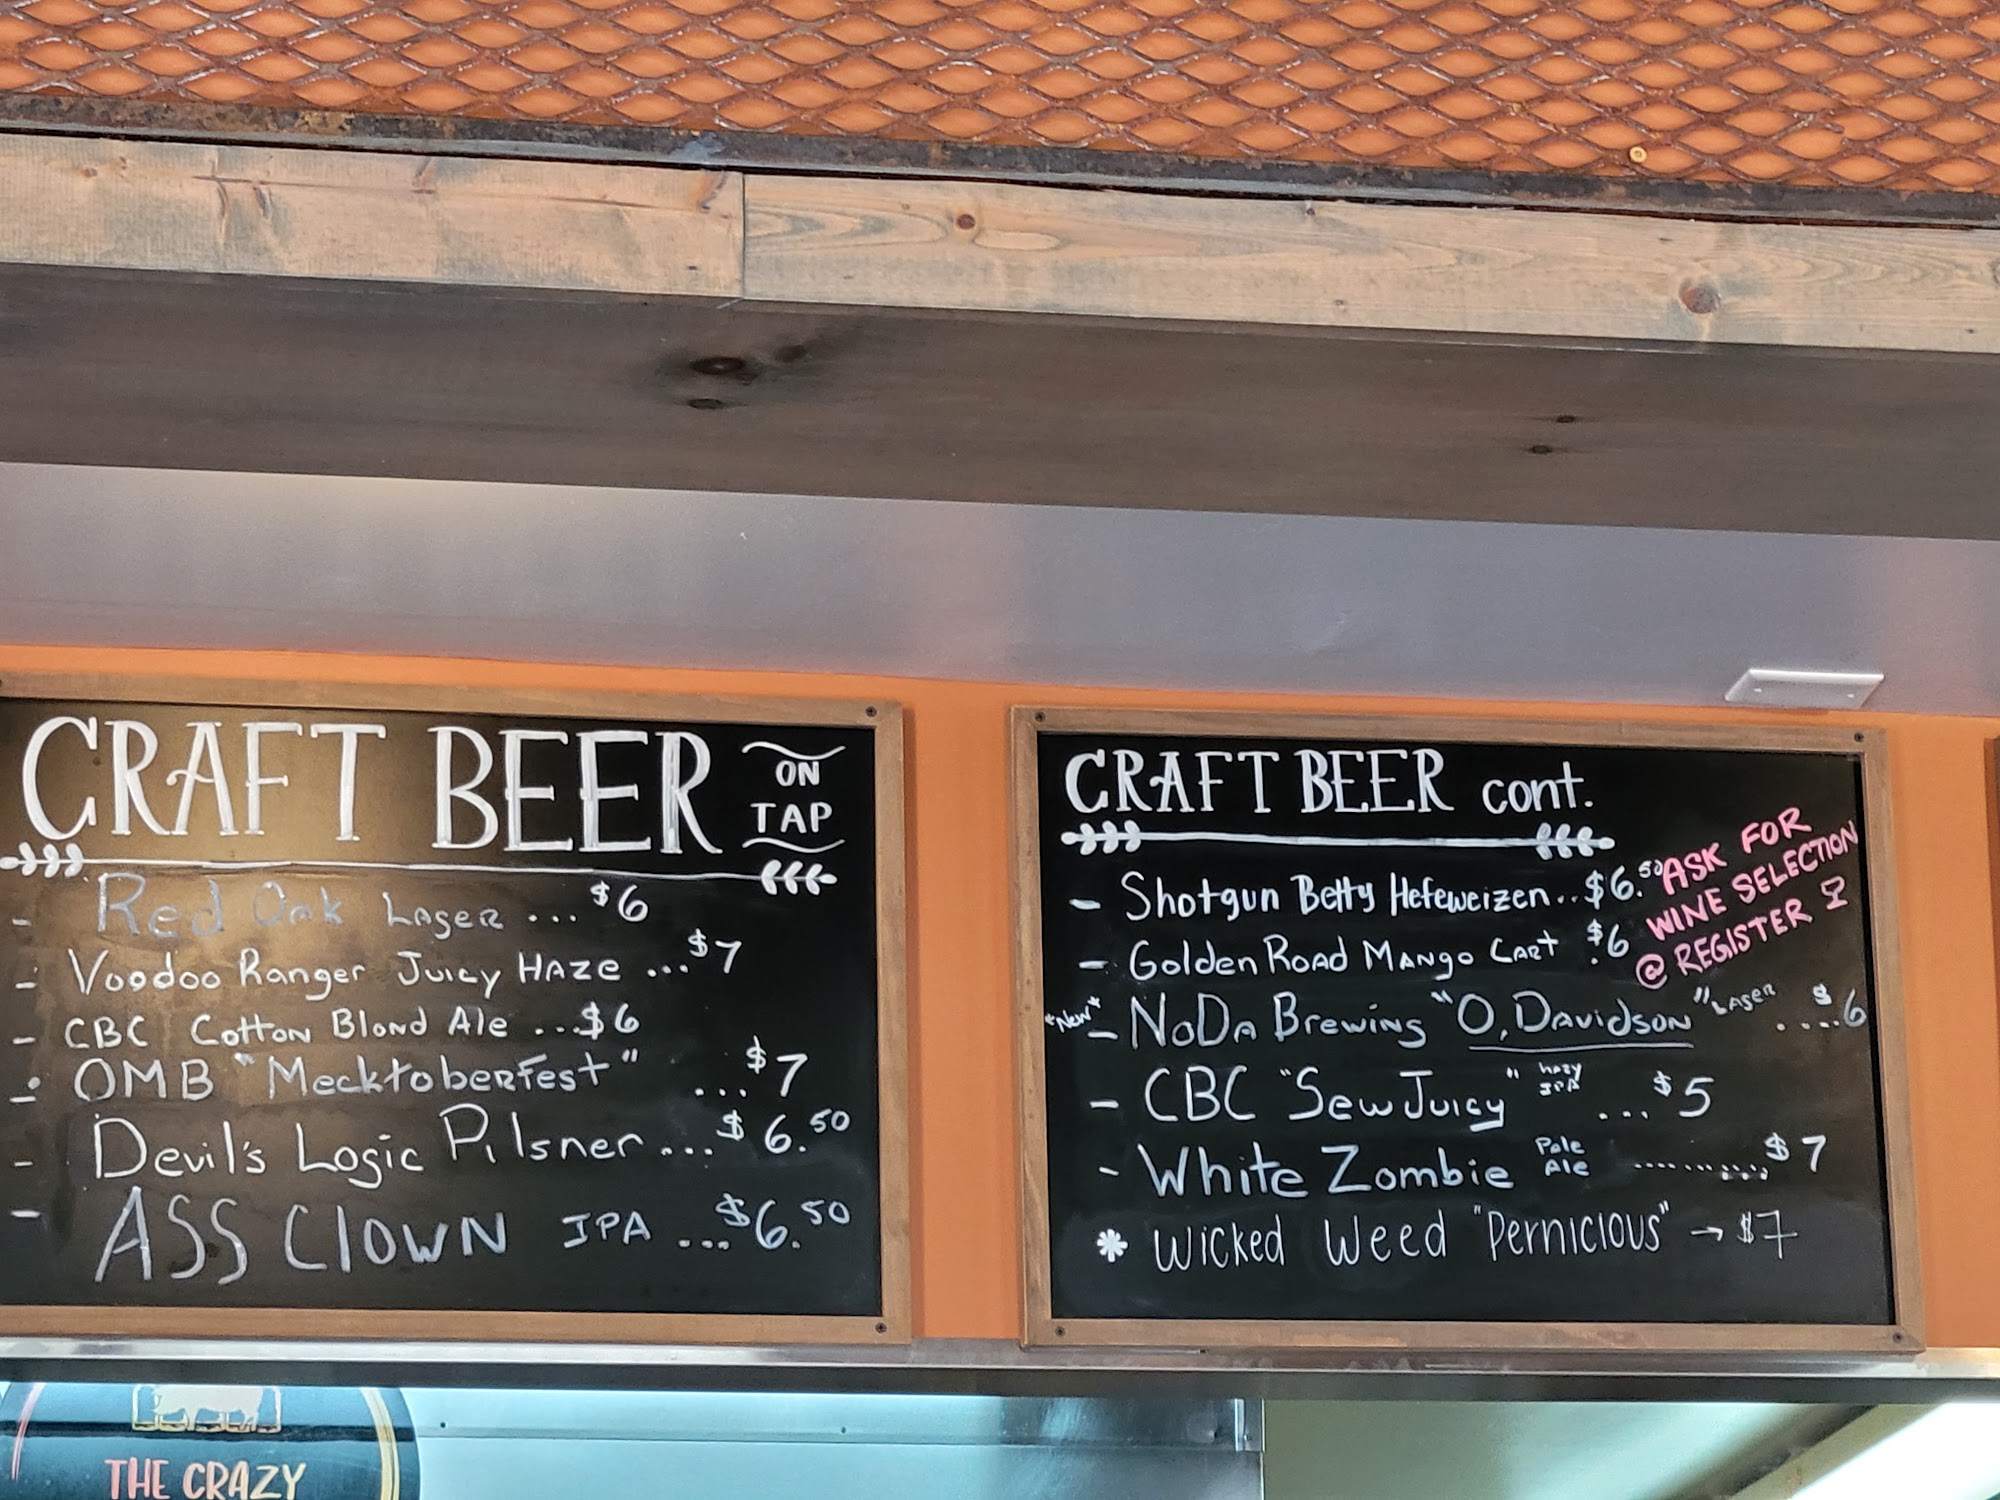 CRAFT BEER ON TAP
- Red Oak Lager ... $6
- Voodoo Ranger Juicy Haze ... $7
- CBC Cotton Blond Ale ... $6
- OMB "Mecktoberfest" ... $7
- Devil's Logic Pilsner ... $6.50
- ASS Clown IPA ... $6.50
CRAFT BEER cont.
- Shotgun Betty Hefeweizen .. $6.50
- Golden Road Mango Cart $6
*New* - NoDa Brewing "O, Davidson" Lager .... $6
- CBC "Sew Juicy" hazy IPA ... $5
- White Zombie Pale Ale ............ $7
* Wicked Weed "Pernicious" → $7
ASK FOR
WINE SELECTION
@ REGISTER
THE CRAZY